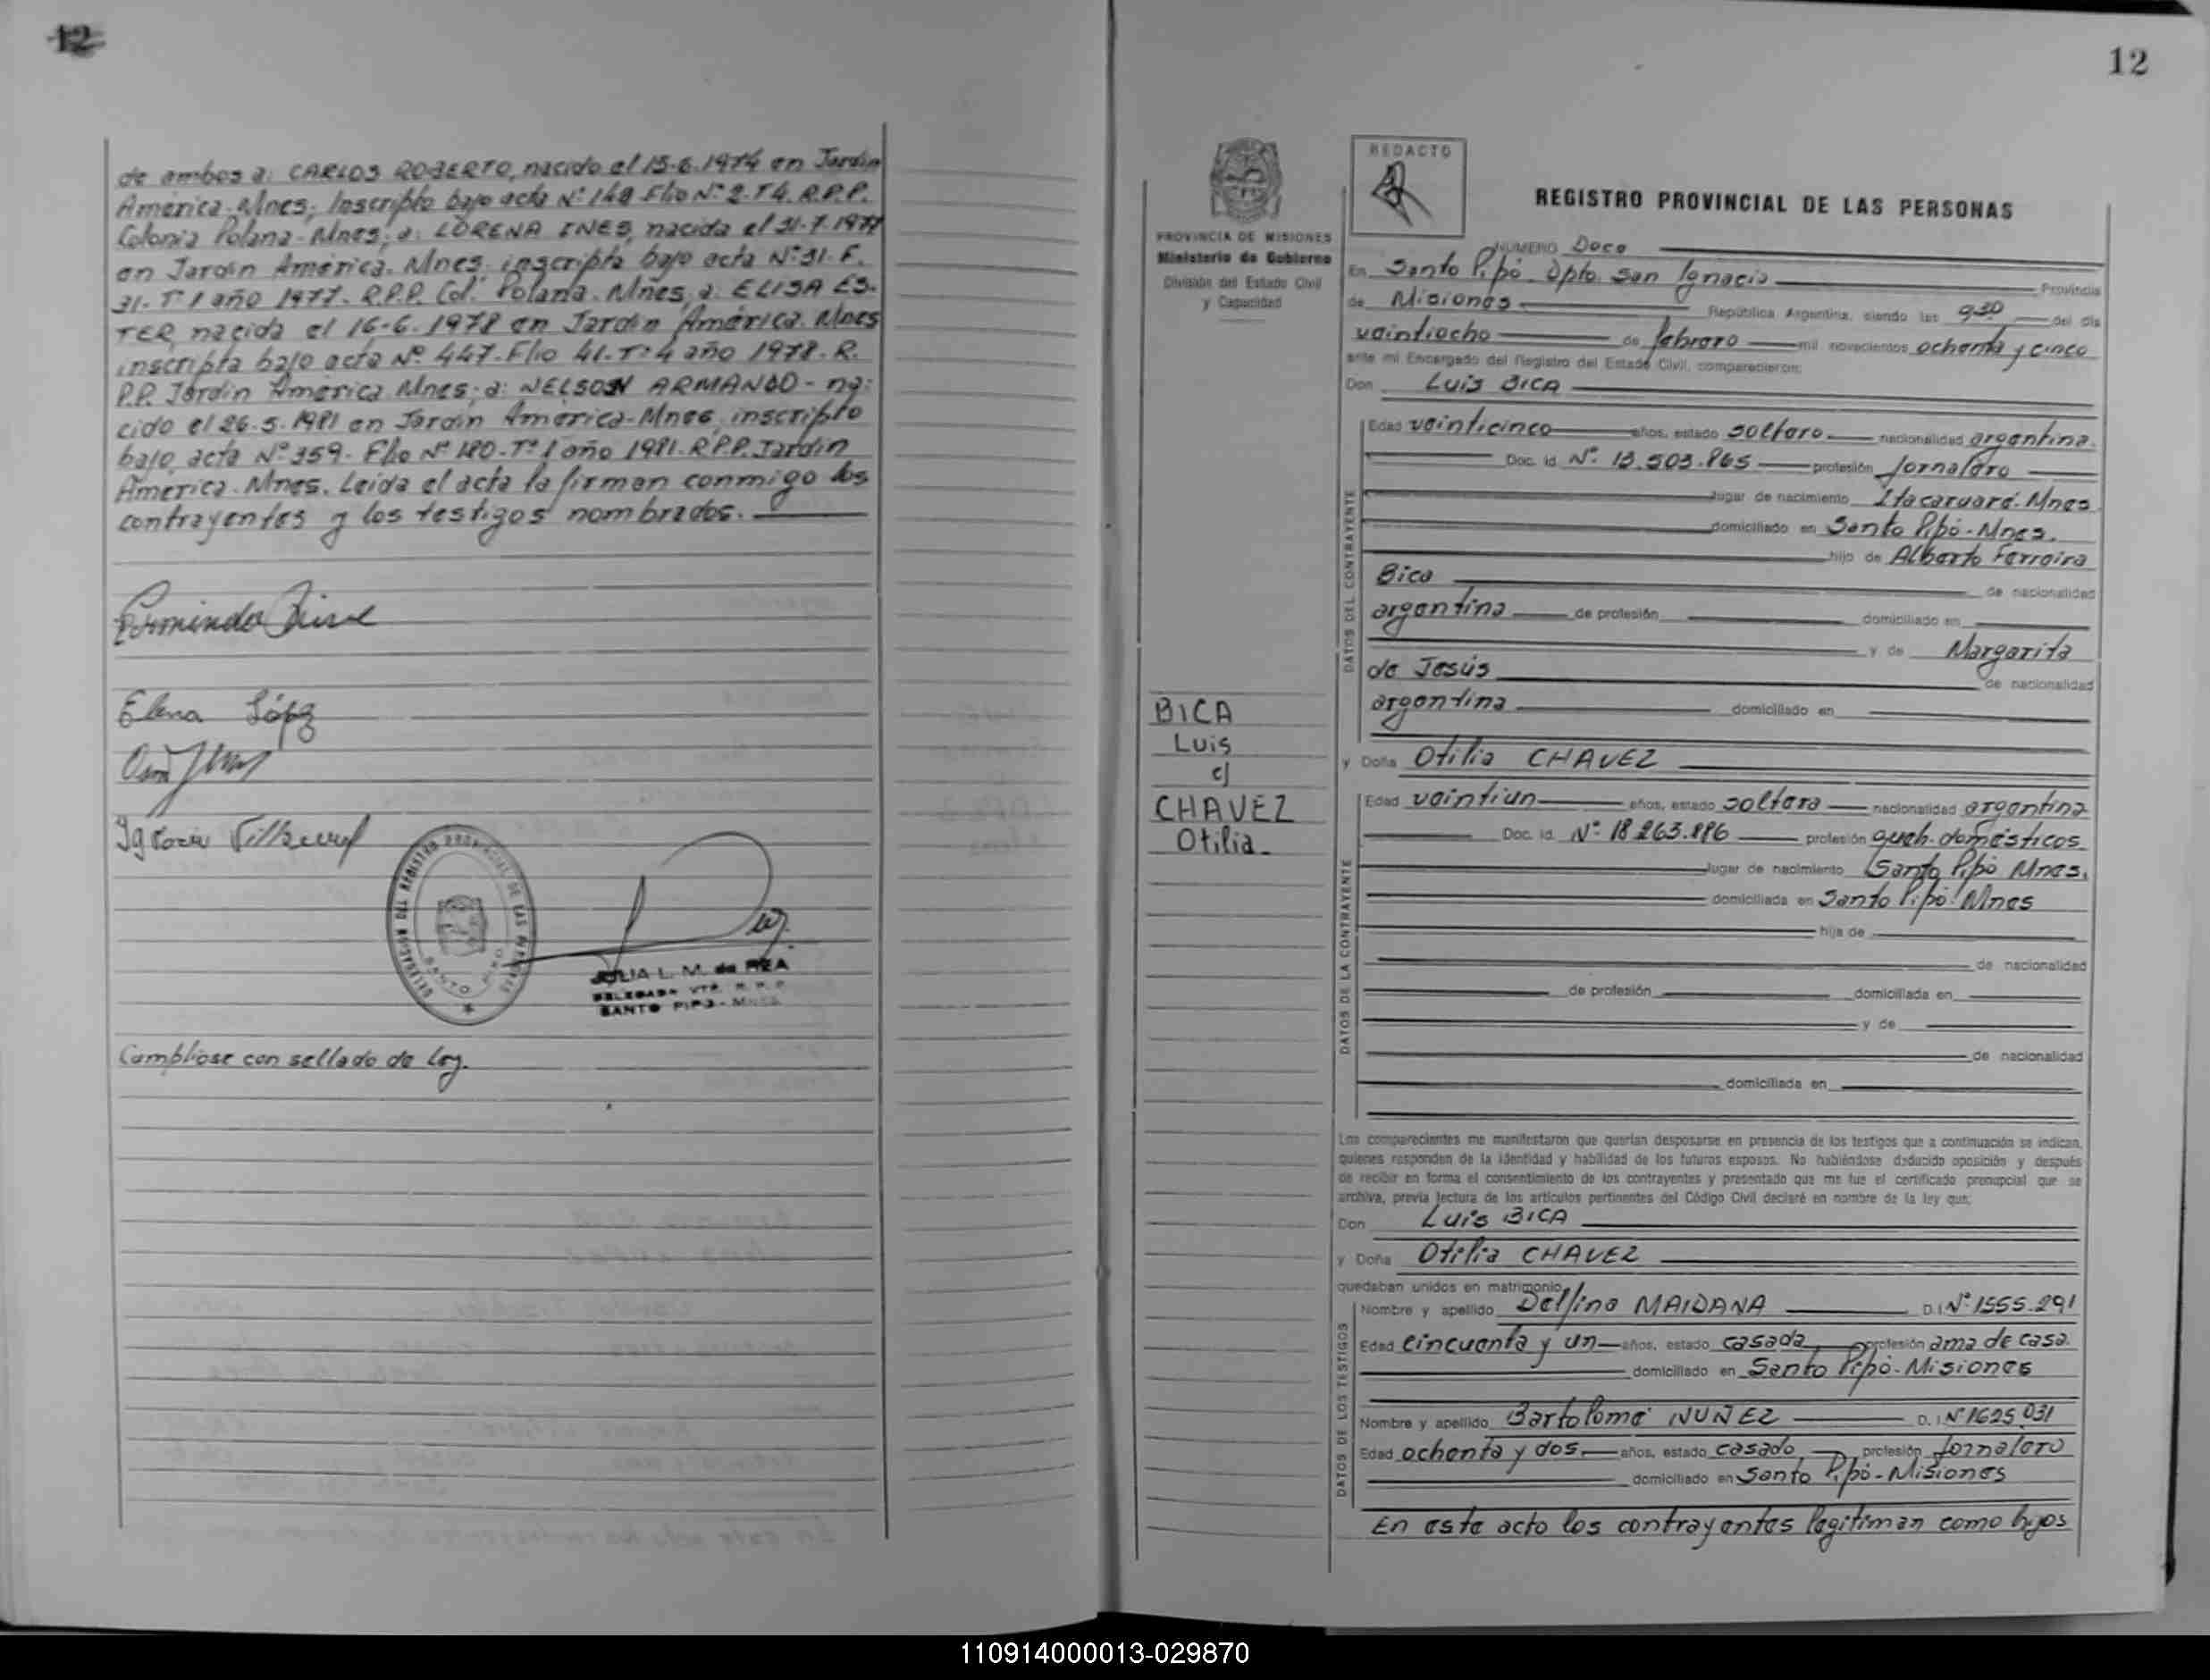 12
de ambos a: CARLOS ROBERTO, nacido el 15-6-1974 en Jardín
América-Mnes; Inscripto bajo acta Nº 148 Flio Nº 2-T4. R.P.P.
Colonia Polana-Mnes; a: LORENA INES, nacida el 31-7-1977
en Jardín América. Mnes. inscripta bajo acta Nº 31. F.
31-Tº 1 año 1977. R.P.P. Col. Polana. Mñes, a: ELISA ES-
TER, nacida el 16-6-1978 en Jardín América. Mnes
inscripta bajo acta Nº 447-Flio 41-Tº 4 año 1978-R.
P.P. Jardín América Mnes; a: NELSON ARMANDO-na:
cido el 26-5-1981 en Jardín América-Mnes inscripto
bajo acta Nº 359-Flio Nº 180-Tº 1 año 1981-R.P.P. Jardín
America-Mnes. Leida el acta la firman conmigo los
contrayentes y los testigos nombrados.
Elena López
DELEGACION DEL REGISTRO PROVINCIAL DE LAS PERSONAS
SANTO PIPO
JULIA L. M. de REA
SANTO PIPO - MNES
Cumpliose con sellado de Ley.
12
PROVINCIA DE MISIONES
Ministerio de Gobierno
División del Estado Civil
y Capacidad
REDACTO
REGISTRO PROVINCIAL DE LAS PERSONAS
NUMERO Doce
En Santo Pipó-Dpto. San Ignacio Provincia
de Misiones República Argentina, siendo las 9.30 del día
veintiocho de febrero mil novecientos ochenta y cinco
ante mi Encargado del Registro del Estado Civil, comparecieron:
Don Luis BICA
DATOS DEL CONTRAYENTE
Edad veinticinco años, estado soltero nacionalidad argentina.
Doc. Id. Nº 13.503.865 profesión Jornalero
lugar de nacimiento Itacaruaré-Mnes
domiciliado en Santo Pipó-Mnes.
hijo de Alberto Ferreira
Bica de nacionalidad
argentina de profesión domiciliado en
y de Margarita
de Jesús de nacionalidad
argentina domiciliado en
BICA
Luis
c/
CHAVEZ
Otilia
y Doña Otilia CHAVEZ
DATOS DE LA CONTRAYENTE
Edad veintiun años, estado soltera nacionalidad argentina
Doc. Id. Nº 18.263.886 profesión queh. domésticos
lugar de nacimiento Santo Pipó Mnes.
domiciliada en Santo Pipó-Mnes
hija de
de nacionalidad
de profesión domiciliada en
y de
de nacionalidad
domiciliada en
Los comparecientes me manifestaron que querían desposarse en presencia de los testigos que a continuación se indican,
quienes responden de la identidad y habilidad de los futuros esposos. No habiéndose deducido oposición y después
de recibir en forma el consentimiento de los contrayentes y presentado que me fue el certificado prenupcial que se
archiva, previa lectura de los artículos pertinentes del Código Civil declaré en nombre de la ley que;
Don Luis BICA
y Doña Otilia CHAVEZ
quedaban unidos en matrimonio
DATOS DE LOS TESTIGOS
Nombre y apellido Delfina MAIDANA D.I. Nº 1555.291
Edad cincuenta y un años, estado casada profesión ama de casa.
domiciliado en Santo Pipó-Misiones
Nombre y apellido Bartolomé NUÑEZ D.I. Nº 1625.031
Edad ochenta y dos años, estado casado profesión Jornalero
domiciliado en Santo Pipó-Misiones
En este acto los contrayentes legitiman como hijos
110914000013-029870